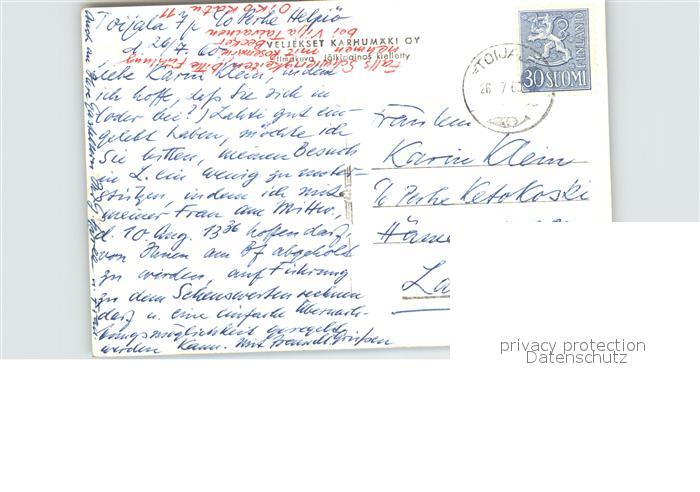 Toijala 7/p c/o Perhe Helpiö
d. 26/7. 60
Liebe Karin Klein, indem
ich hoffe, daß Sie sich in
(oder bei?) Lahti gut ein-
gelebt haben, möchte ich
Sie bitten, meinen Besuch
in L. ein wenig zu unter-
stützen, indem ich mit
meiner Frau am Mittw.,
d. 10 Aug. 13 36 hoffen darf,
von Ihnen am Bf abgeholt
zu werden, auf Führung
zu dem Sehenswerten rechnen
darf u. eine einfache Übernach-
tungsmöglichkeit geregelt
werden kann. Mit freundl. Grüßen
Falls Schwierigkeiten, bitte Führung
mit Rosemarie Becker
bei Vilja Taivainen
VELJEKSET KARHUMÄKI OY
Ilmakuva Jälkipainos kielletty
TOIJALA
26. 7 60
30 SUOMI
FINLAND
Fräulein
Karin Klein
c/o Perhe Ketokoski
Häme
La
privacy protection
Datenschutz